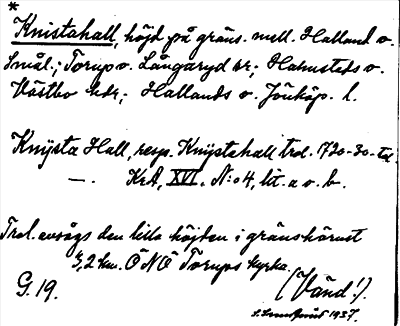 *
Knistahall, höjd på gräns. mell. Halland o.
Smål.; Torup o. Långaryd sr; Halmstads o.
Västbo hdr; Hallands o. Jönköp. l.
Knÿsta Hall, resp. Knÿstahall trol. 1720-30-tal
—. KrA, XVI. N:o 4, lit. a o. b.
Trol. avsågs den lilla höjden i gränshörnet
5,2 km. ÖNÖ Torups kyrka.
G. 19. (Vänd!).
1937.